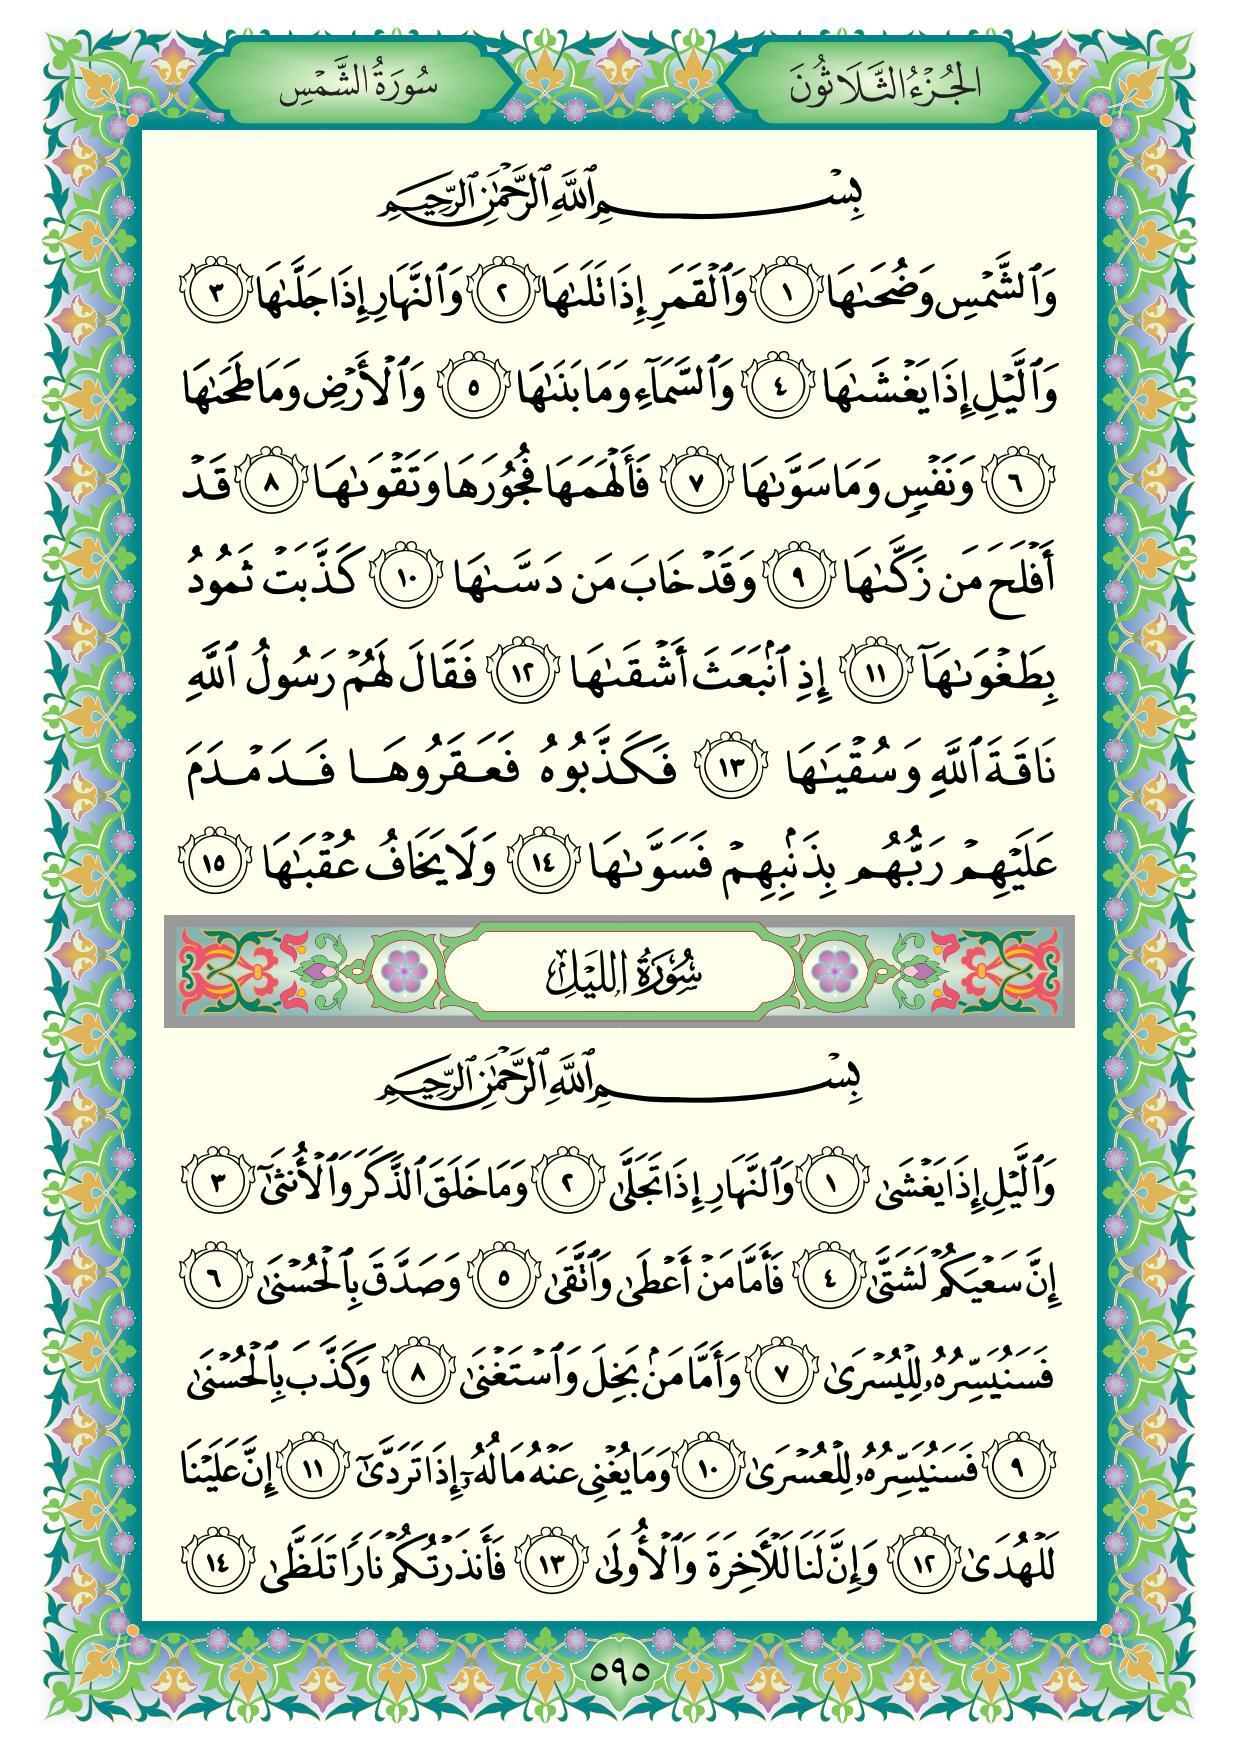 الجُزْءُ الثَّلَاثُونَ
سُورَةُ الشَّمْسِ
بِسْمِ ٱللَّهِ ٱلرَّحْمَٰنِ ٱلرَّحِيمِ
وَٱلشَّمْسِ وَضُحَىٰهَا ١ وَٱلْقَمَرِ إِذَا تَلَىٰهَا ٢ وَٱلنَّهَارِ إِذَا جَلَّىٰهَا ٣
وَٱلَّيْلِ إِذَا يَغْشَىٰهَا ٤ وَٱلسَّمَآءِ وَمَا بَنَىٰهَا ٥ وَٱلْأَرْضِ وَمَا طَحَىٰهَا
٦ وَنَفْسٍ وَمَا سَوَّىٰهَا ٧ فَأَلْهَمَهَا فُجُورَهَا وَتَقْوَىٰهَا ٨ قَدْ
أَفْلَحَ مَن زَكَّىٰهَا ٩ وَقَدْ خَابَ مَن دَسَّىٰهَا ١٠ كَذَّبَتْ ثَمُودُ
بِطَغْوَىٰهَآ ١١ إِذِ ٱنۢبَعَثَ أَشْقَىٰهَا ١٢ فَقَالَ لَهُمْ رَسُولُ ٱللَّهِ
نَاقَةَ ٱللَّهِ وَسُقْيَٰهَا ١٣ فَكَذَّبُوهُ فَعَقَرُوهَا فَدَمْدَمَ
عَلَيْهِمْ رَبُّهُم بِذَنۢبِهِمْ فَسَوَّىٰهَا ١٤ وَلَا يَخَافُ عُقْبَٰهَا ١٥
سُورَةُ اللَّيْلِ
بِسْمِ ٱللَّهِ ٱلرَّحْمَٰنِ ٱلرَّحِيمِ
وَٱلَّيْلِ إِذَا يَغْشَىٰ ١ وَٱلنَّهَارِ إِذَا تَجَلَّىٰ ٢ وَمَا خَلَقَ ٱلذَّكَرَ وَٱلْأُنثَىٰٓ ٣
إِنَّ سَعْيَكُمْ لَشَتَّىٰ ٤ فَأَمَّا مَنْ أَعْطَىٰ وَٱتَّقَىٰ ٥ وَصَدَّقَ بِٱلْحُسْنَىٰ ٦
فَسَنُيَسِّرُهُۥ لِلْيُسْرَىٰ ٧ وَأَمَّا مَنۢ بَخِلَ وَٱسْتَغْنَىٰ ٨ وَكَذَّبَ بِٱلْحُسْنَىٰ
٩ فَسَنُيَسِّرُهُۥ لِلْعُسْرَىٰ ١٠ وَمَا يُغْنِى عَنْهُ مَالُهُۥٓ إِذَا تَرَدَّىٰٓ ١١ إِنَّ عَلَيْنَا
لَلْهُدَىٰ ١٢ وَإِنَّ لَنَا لَلْـَٔاخِرَةَ وَٱلْأُولَىٰ ١٣ فَأَنذَرْتُكُمْ نَارًا تَلَظَّىٰ ١٤
٥٩٥